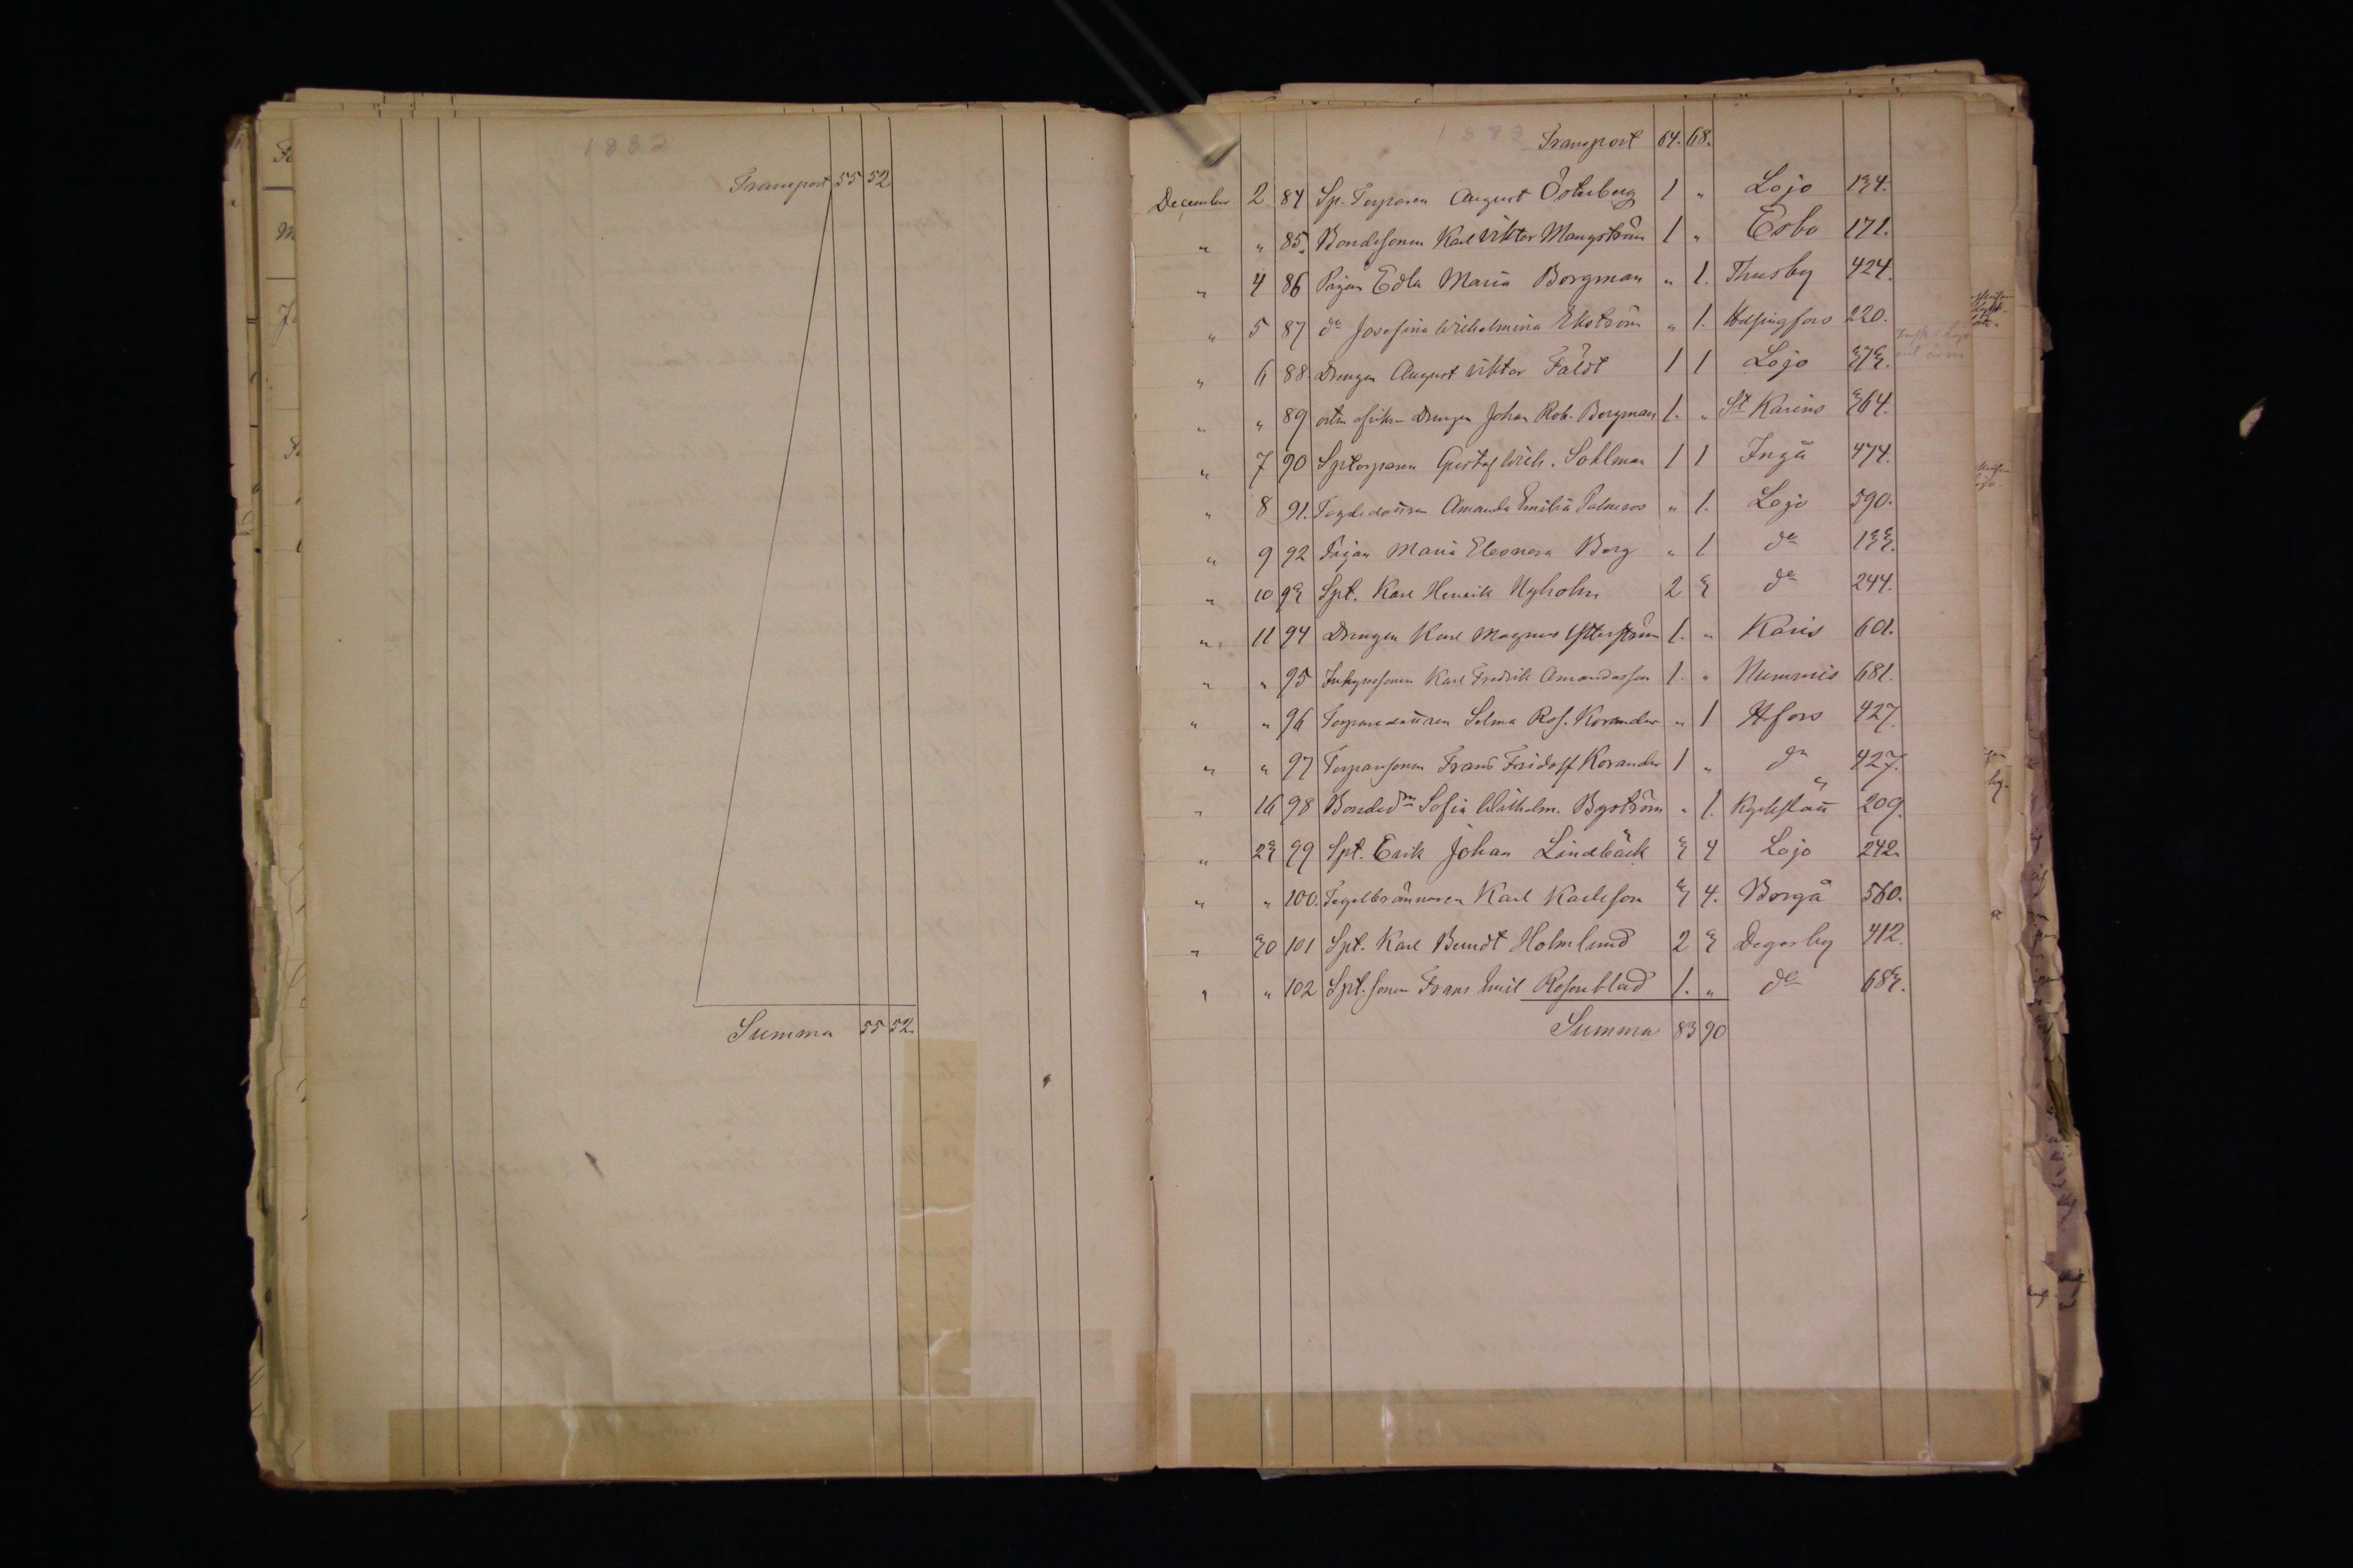 1882
Transport 55 52
Summa 55 52.
1882 Transport 64. 68.
December 2 84 Sp. Torparen August Österberg 1 " Lojo 134.
" " 85. Bondesonen Karl Viktor Mangström 1 " Esbo 171.
" 4 86 Pigan Edla Maria Borgman " 1. Thusby 424.
" 5 87 do Josefina Wilhelmina Ekström " 1. Helsingfors 220.
" 6 88 Drengen August Viktor Fäldt 1 1 Lojo 373.
" " 89 Drengen Johan Rob. Bergman 1. " St Karins 364.
" 7 90 Sptorparen Gustaf Wilh. Sohlman 1 1 Ingå 474.
" 8 91. Amanda Emilia " 1. Lojo 590.
" 9 92 Pigan Maria Eleonora Borg " 1 do 133.
" 10 93 Spt. Karl Henrik Nyholm 2 3 do 244.
" 11 94 Drengen Karl Magnus 1. " Karis 601.
" " 95 Inhysessonen Karl Fredrik Amandasson 1. " Nummis 681.
" " 96 Torparedottren Selma Ros. Korander " 1 Hfors 427.
" " 97 Torparsonen Frans Fridolf Korander 1 " do 427.
" 16 98 Bonded:n Sofia Wilhelm. Byström " 1. Kyrkslätt 209.
" 23 99 Spt. Erik Johan Lindbäck 3 4 Lojo 242.
" " 100. Tegelbrännaren Karl Karlsson 3 4. Borgå 560.
" 30 101 Spt. Karl Berndt Holmlund 2 3 Degerby 412.
" " 102 Spt. sonen Frans Emil Rosenblad 1. " do 683.
Summa 83 90